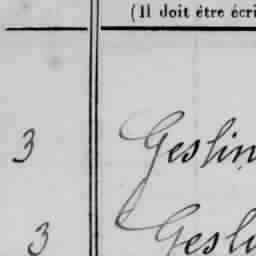 (Il doit être écri
3 Geslin
3 Gesli